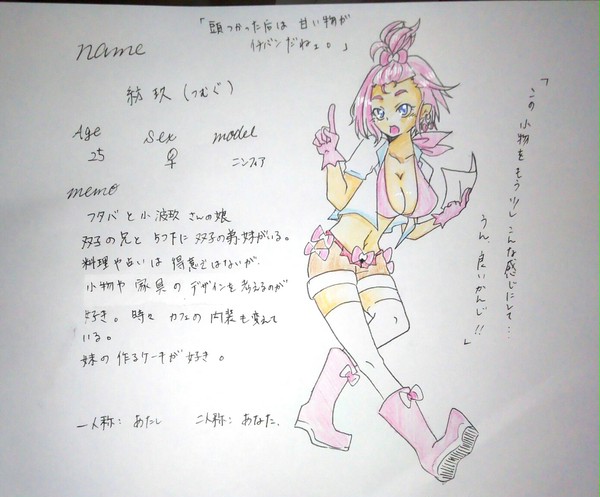 「頭つかった后は 甘い物が
イチバンだねぇ。」
name
紡玖（つむぐ）
Age Sex model
25 ♀ ニンフィア
memo
フタバと小波玖さんの娘
双子の兄と 5つ下に双子の弟妹がいる。
料理や占いは得意ではないが、
小物や家具の デザインを考えるのが
好き。時々カフェの内装も変えて
いる。
妹の作るケーキが好き。
一人称：あたし 二人称：あなた.
「この小物をもう少しこんな感じにして…
うん、良いかんじ!!」